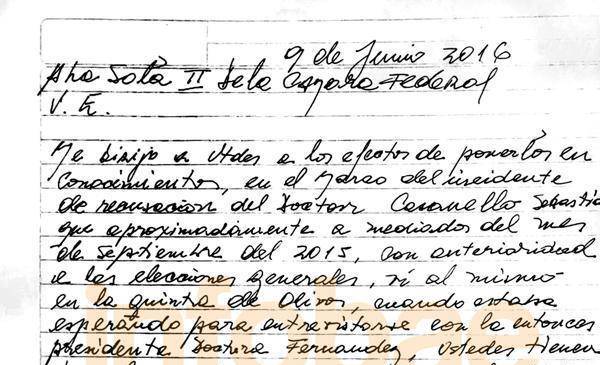 9 de Junio 2016
A la Sala II de la Camara Federal
V. E.
Me dirijo a Uds a los efectos de ponerlos en
conocimientos, en el marco del incidente
de recusacion del Doctor Casanello Sebastia
que aproximadamente a mediados del mes
de septiembre del 2015, con anterioridad
a las elecciones generales, vi al mismo
en la quinta de Olivos, cuando estaba
esperando para entrevistarse con la entonces
presidenta Doctora Fernandez, Ustedes tienen
infobae